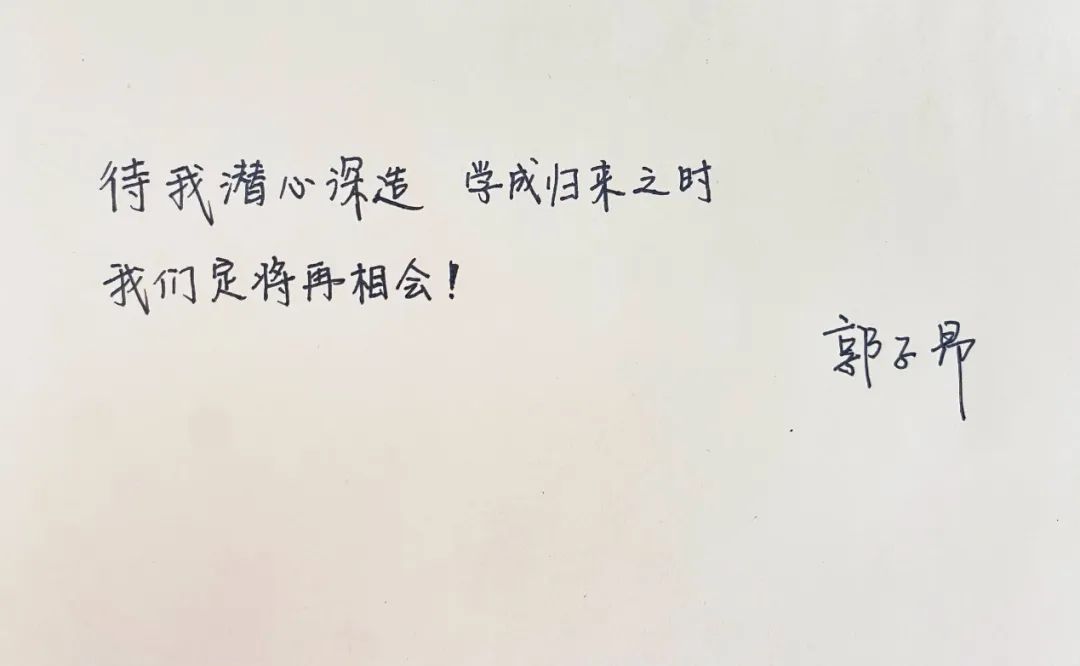 待我潜心深造 学成归来之时
我们定将再相会！
郭子昂